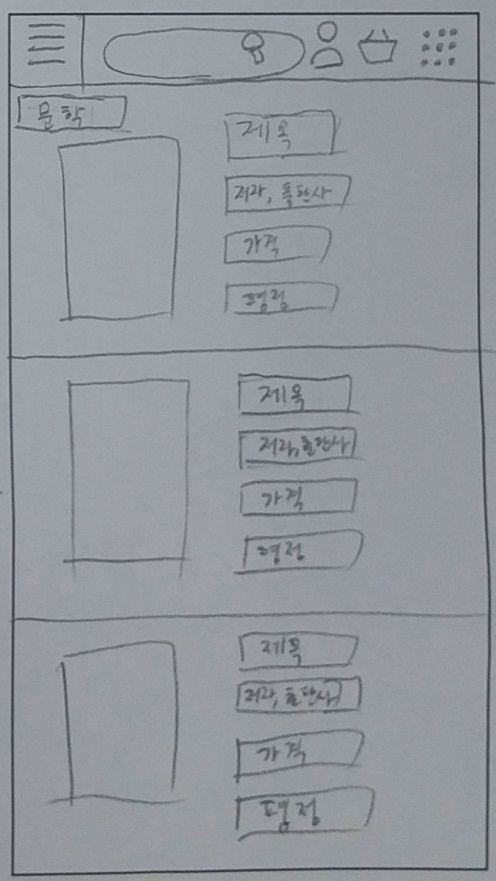 문학
제목
저자, 출판사
가격
평점
제목
저자, 출판사
가격
평점
제목
저자, 출판사
가격
평점